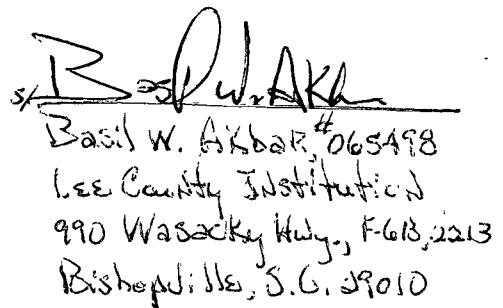 s/ Basil W. Akbar
Basil W. Akbar, #065498
Lee County Institution
990 Wasacky Hwy., F-6B, 2213
Bishopville, S.C. 29010